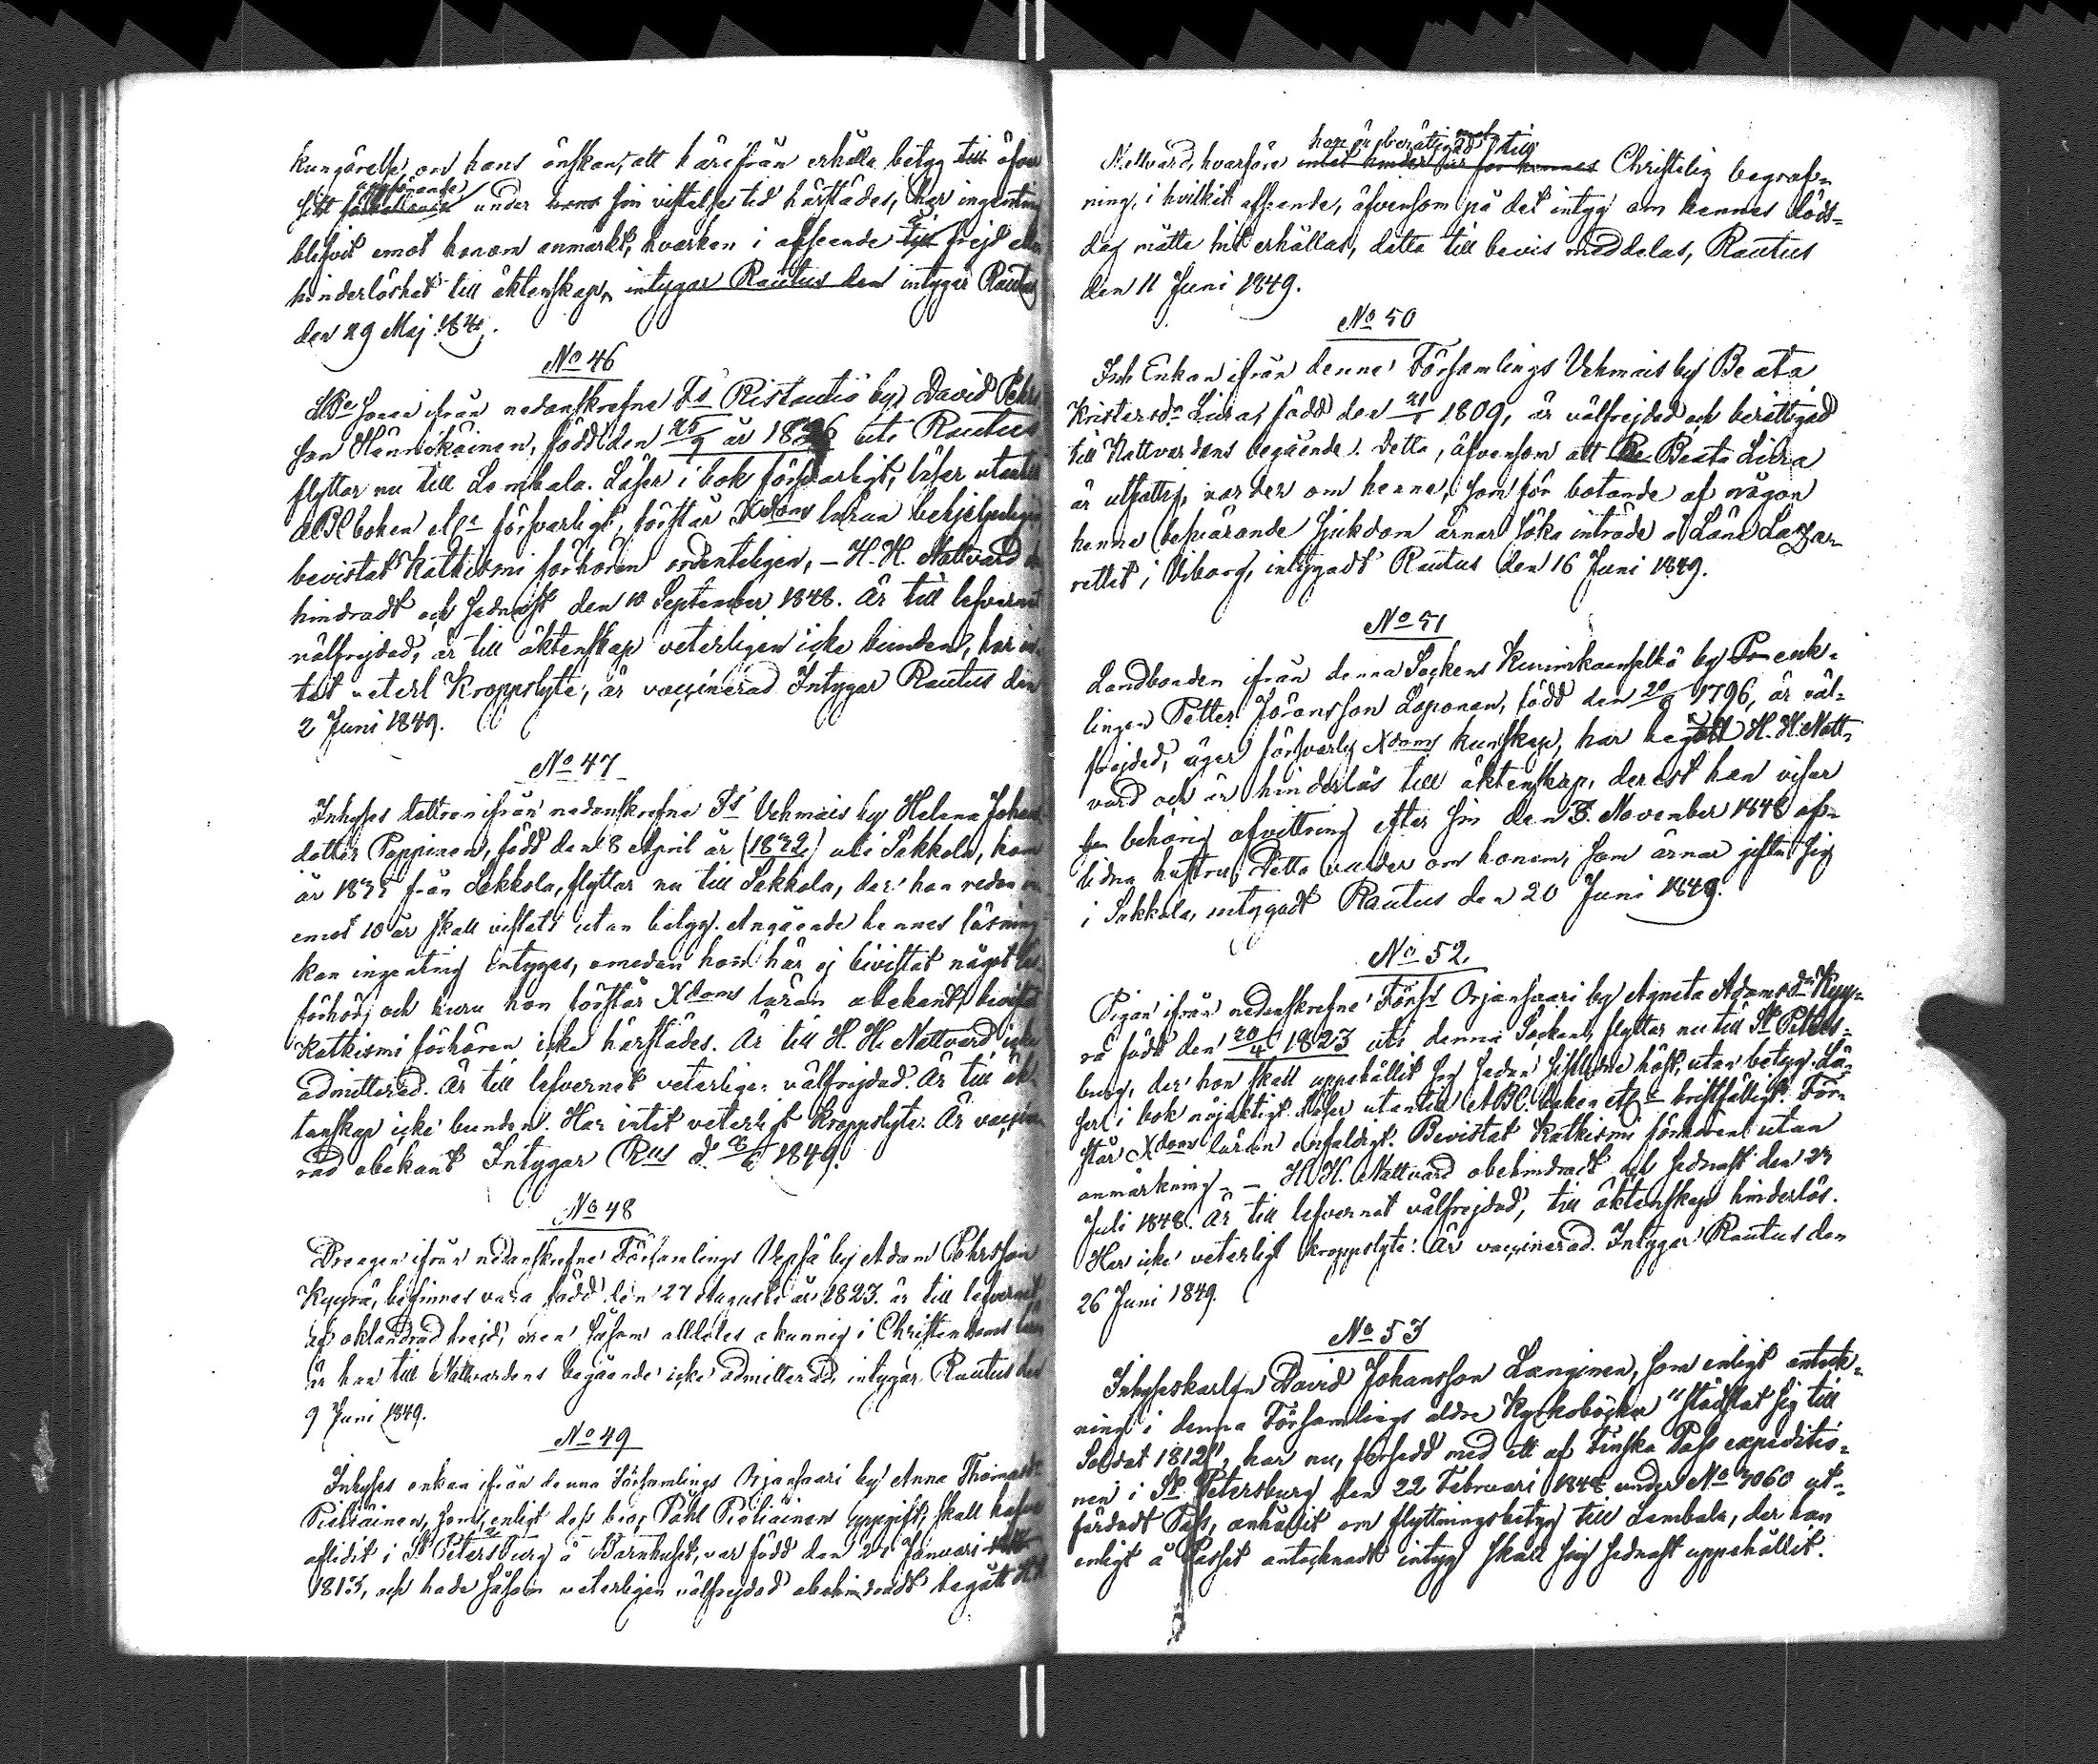 kungörelse om hans önskan, att härifrån erhålla betyg till öfver
uppförande
sitt förhållande under hans sin vistelse tid härstädes, har ingenting
blifvit emot honom anmärkt, hvarken i afseende till frejd eller
hinderlöshet till äktenskap, intygar Rautus den intygar Rautus
den 29 Maj 1849.
No 46
sonen ifrån nedanskrefne Fs Ristautio by David Pehrs
son Hännikäinen, född den 25/9 år 1826 uti Rautus
flyttar nu till Lembala. Läser i bok försvarligt, läser utantill
ABC boken etc försvarligt, förstår Xdoms läran behjelpligen
bevistat Katkismi förhören ordenteligen, – H. H. Nattvard
hindradt och sednast den 10 September 1848. Är till lefvernet
välfrejdad, är till äktenskap veterligen icke bunden, har in-
tet veterl. Kroppslyte, är vaccinerad Intygar Rautus den
2 Juni 1849.
No 47
Inhyses dottren ifrån nedanskrefne Fs Vehmais by Helena Johans
dotter Poppinen, född den 8 April år (1832) uti Sakkola, kom
år 1835 från Sakkola, flyttar nu till Sakkola, der hon redan
emot 10 år skall vistats utan betyg. Angående hennes läsning
kan ingenting intygas, emedan hon här ej bivistat något läs-
förhör, och huru hon förstår Xdoms läran obekant, bevistat
Katkismi förhören icke härstädes. Är till H. H. Nattvard icke
admitterad. Är till lefvernet veterligen välfrejdad. Är till äk-
tenskap icke bunden. Har intet veterligt Kroppslyte. Är vaccine
rad obekant Intygar Rus d. 1849.
No 48
Drengen ifrån nedanskrefne Församlings Vepsä by Adam Pehrsson
Kyyrä, befinnes vara född den 27 Augusti år 1823. är till lefvernet
af oklandrad frejd, men såsom alldeles okunnig i Christendoms läran
är han till Nattvardens begående icke admitterad, intygar Rautus den
9 Juni 1849.
No 49
Inhyses enkan ifrån denna Församlings Orjansaari by Anna Thomasdr
Pieliäinen, som, enligt dess bror Påhl Pieliäinens uppgift, skall hafva
aflidit i St Petersburg å Barnhuset, var född den 21 Januari
1813, och hade såsom veterligen välfrejdad obehindradt begått H.H.
hon är berättigad till
Nattvard, hvarföre intet hinder är för hennes Christelig begraf-
ning, i hvilket afseende, äfvensom på det intyg om hennes döds-
dag måtte hit erhållas, detta till bevis meddelas, Rautus
den 11 Juni 1849.
No 50
Inh. Enkan ifrån denne Församlings Vehmais by Beata
Kristersdr Liira, född den 21/1 1809, är välfrejdad och berättigad
till Nattvardens begående. Detta, äfvensom att Be Beata Liira
är utfattig, varder om henne, som för botande af någon
henne besvärande sjukdom ärnar söka inträde i Läns Laza-
rettet i Viborg, intygadt Rautus den 16 Juni 1849.
No 51
Landbonden ifrån denna Sockens Kuninkaanselkä by Pr enk-
lingen Petter Jöransson Loponen, född den 20/8 1796, är väl-
frejdad, äger försvarlig Xdoms kunskap, har begått H. H. Natt-
vard och är hinderlös till äktenskap, derest han visar
behörig afvittring efter sin den 5. November 1848 af-
lidna hustru. Detta varder om honom, som ärnar gifta sig
i Sakkola, intygadt Rautus den 20 Juni 1849.
No 52.
Pigan ifrån nedanskrefne Förs:s Orjansaari by Agneta Adamsdr Kyy-
rä född den 20/4 1823 uti denna Socken, flyttar nu till St Peters-
burg, der hon skall uppehållit sig sedan sistledne höst, utan betyg. Lä-
ser i bok nöjaktigt. Läser utantill ABC. boken etc bristfälligt. För-
står Xdoms läran enfaldigt. Bevistat Katkismi förhören utan
anmärkning. – H. H. Nattvard obehindradt och sednast den 23
Juli 1848. Är till lefvernet välfrejdad, till äktenskap hinderlös.
Har icke veterligt kroppslyte. Är vaccinerad. Intygar Rautus den
26 Juni 1849.
No 53
Inhyseskarlen David Johansson Langinen, som enligt anteck-
ning i denna Församlings äldre Kyrkoböcker "städslat sig till
Soldat 1812", har nu, försedd med ett af Finska Pass expeditio-
nen i St Petersburg den 22 Februari 1848 under No 3060 ut-
färdadt Pass, anhållit om flyttningsbetyg till Lembala, der han
enligt å Passet antecknadt intyg skall sig sednast uppehållit.